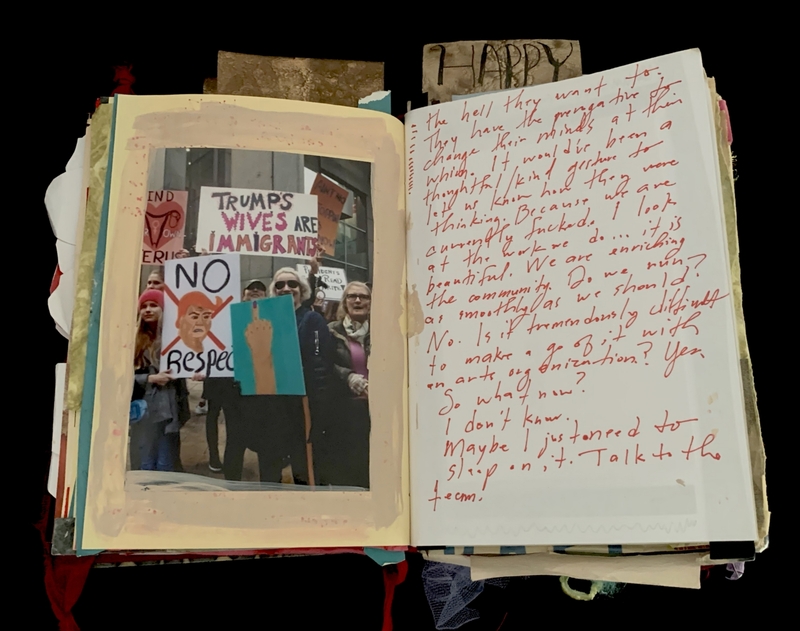 HAPPY
IND
ERUS
TRUMP'S
WIVES ARE
IMMIGRANTS
NO
Respec
the hell they want to.
They have the prerogative to
change their minds at their
whim. It would've been a
thoughtful/kind gesture to
let us know how they were
thinking. Because we are
currently fucked. I look
at the work we do... it is
beautiful. We are enriching
the community. Do we run?
as smoothly as we should?
No. Is it tremendously difficult
to make a go of it with
an arts organization? Yes
So what now?
I don't know.
Maybe I just need to
sleep on it. Talk to the
team.